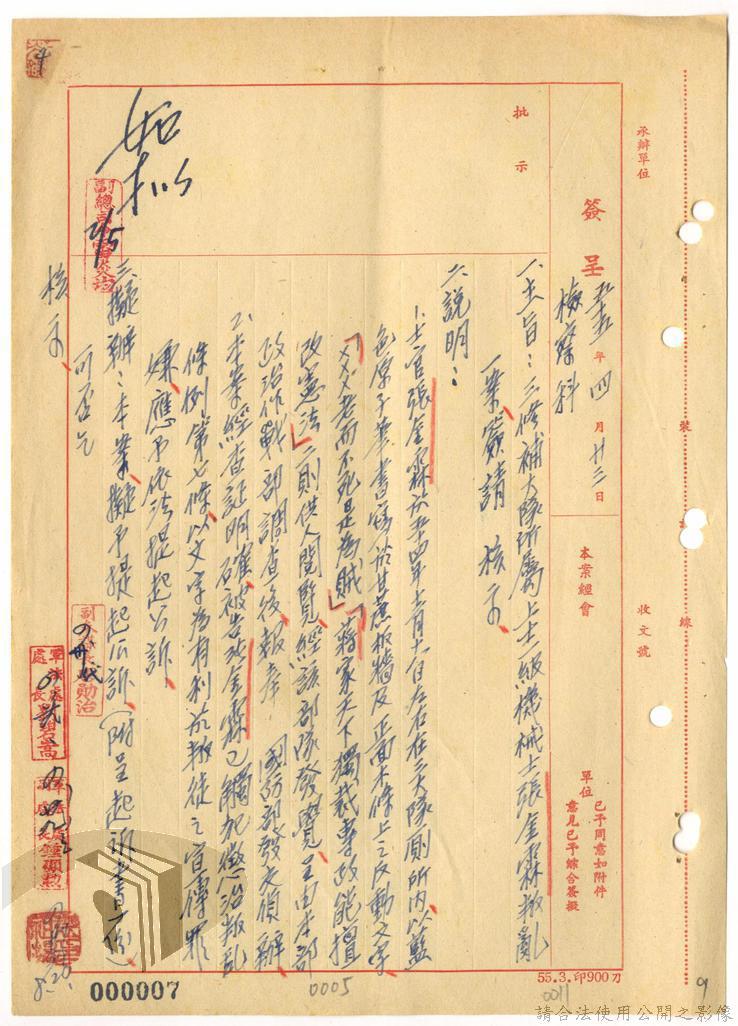 承辦單位
簽呈
五五年四月廿三日
檢察科
本案經會
單位
已予同意如附件
意見已予綜合簽擬
收文號
裝
訂
線
批示
如擬
一、主旨：三修補大隊所屬上士一級機械士張金霖叛亂
一案簽請 核示
二、說明：
1.上士官張金霖於五四年 月 日左右在三大隊廁所內以藍
色原子筆書寫於甘蔗板牆及正面木條上之反動文字
「×××老而不死是為賊」「蔣家天下獨裁專政能擅
改憲法」二則供人閱覽、經該部隊發覺、呈由本部
政治作戰部調查後、報奉 國防部發交偵辦
2.本案經查証明確被告張金霖已觸犯懲治叛亂
條例第七條以文字為有利於叛徒之宣傳罪
嫌、應予依法提起公訴、
三、擬辦：本案擬予提起公訴、（附呈起訴書 份）
可否乞
核示
55.3.印900刀
000007
0005
0011
9
8.20.
請合法使用公開之影像